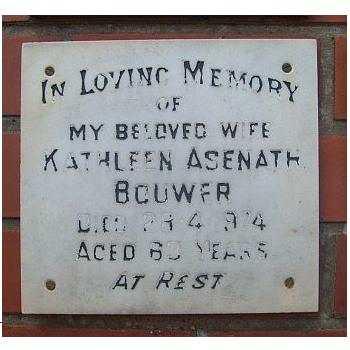 IN LOVING MEMORY
OF
MY BELOVED WIFE
KATHLEEN ASENATH
BOUWER
DIED 4
AGED YEARS
AT REST